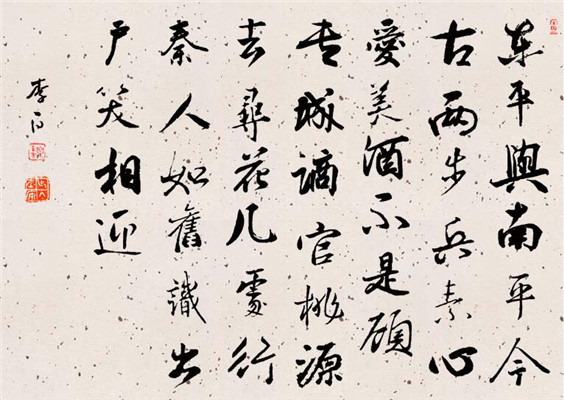 東平與南平今
古兩步兵素心
愛美酒不是顧
专城謫官桃源
去尋花几處行
秦人如舊識出
户笑相迎
李白